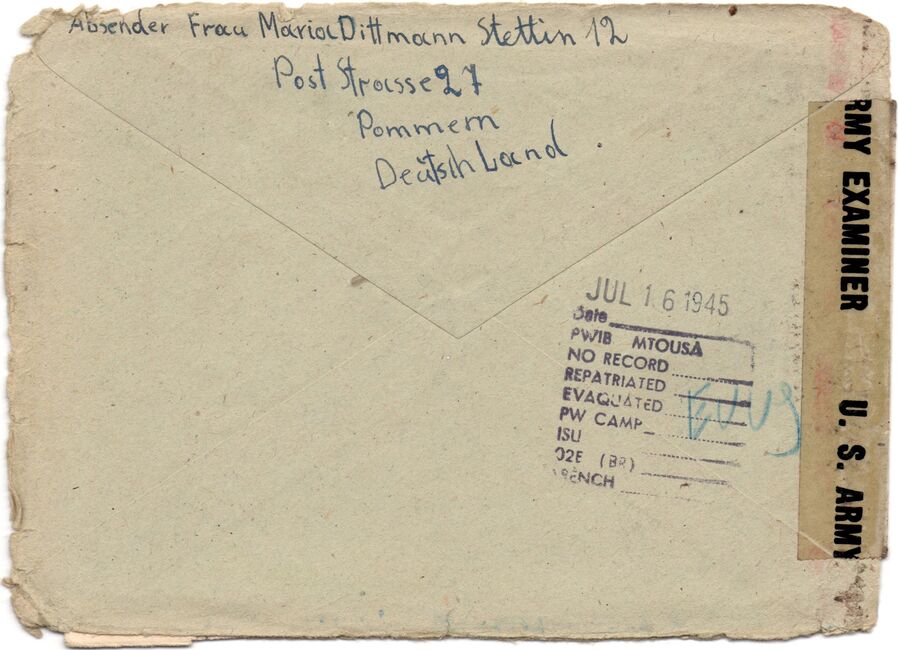 Absender Frau Maria Dittmann Stettin 12
Post Strasse 27
Pommern
Deutschland
JUL 16 1945
Date
PWIB MTOUSA
NO RECORD
REPATRIATED
EVAQUATED
PW CAMP
ISU
O2E (BR)
ARMY EXAMINER U. S. ARMY